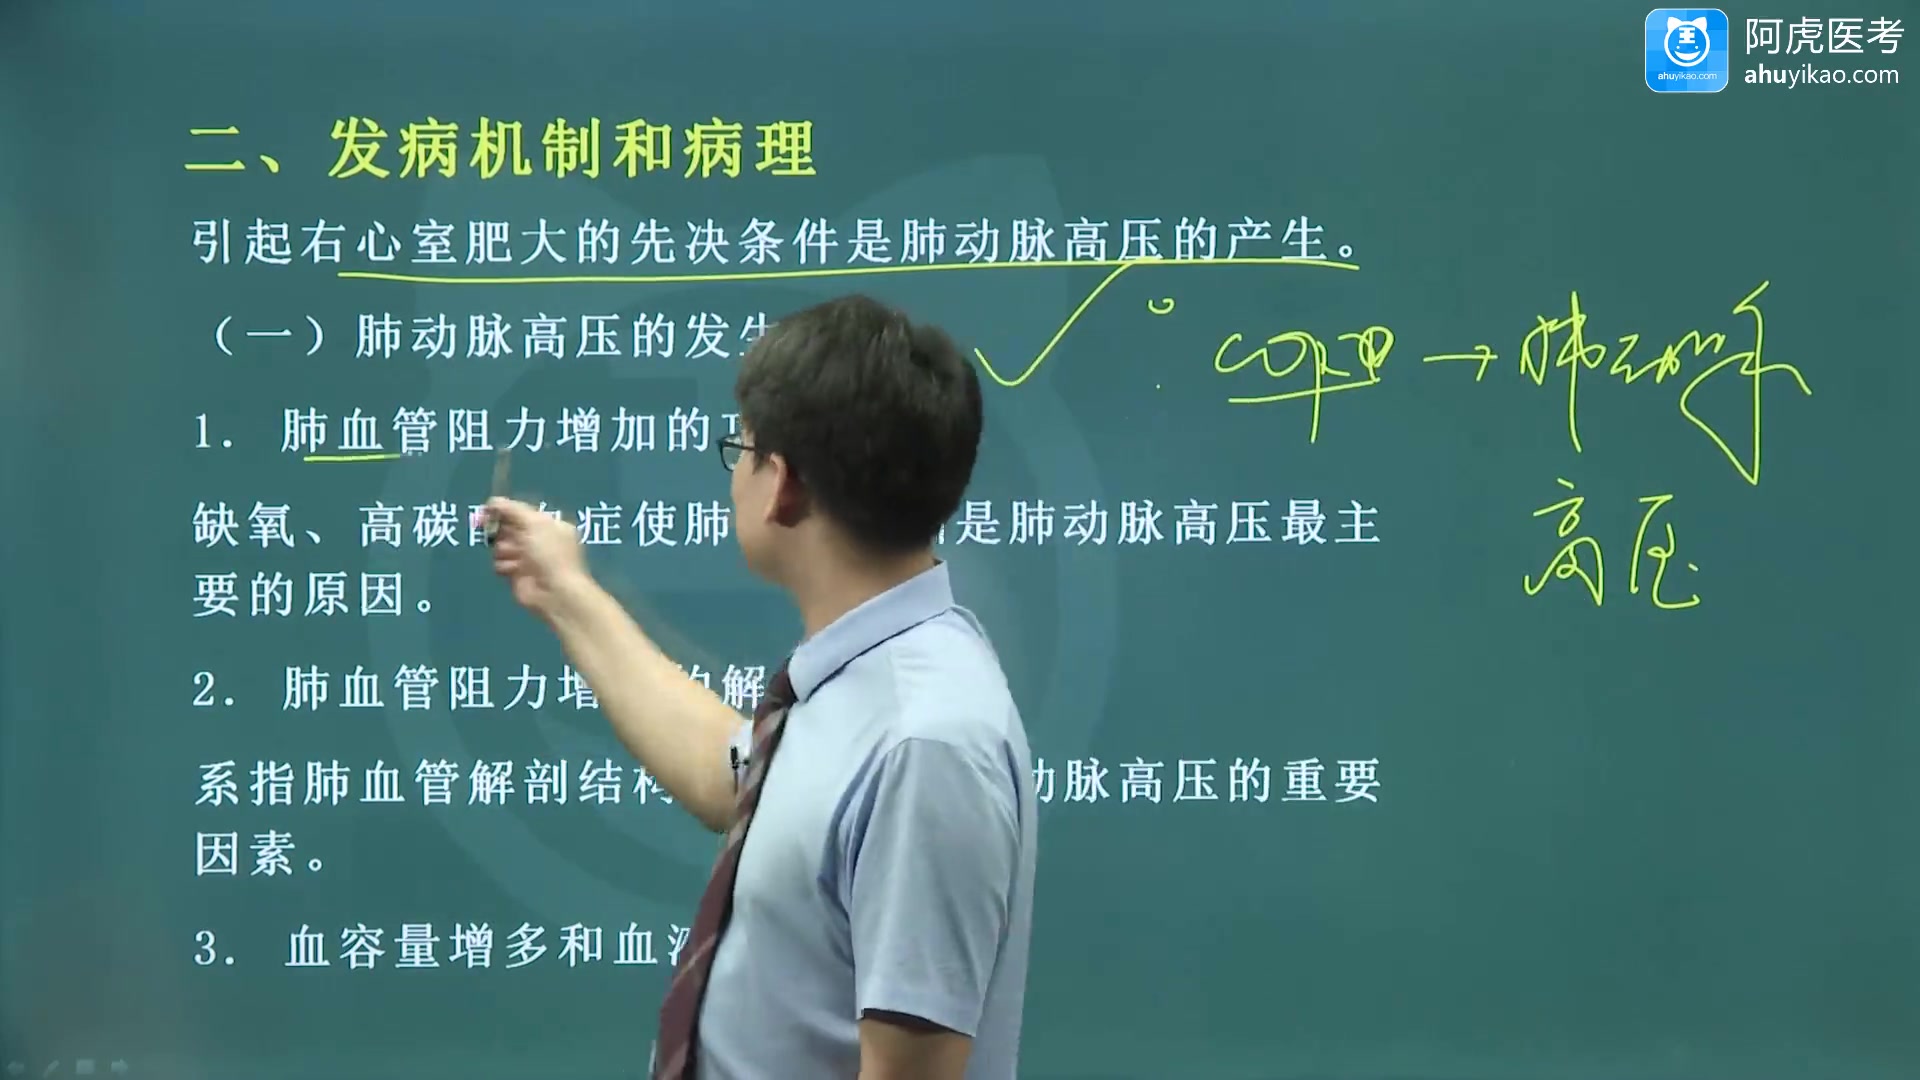 阿虎医考
ahuyikao.com
ahuyikao.com
二、发病机制和病理
引起右心室肥大的先决条件是肺动脉高压的产生。
（一）肺动脉高压的发生
1. 肺血管阻力增加的
缺氧、高碳 症使肺 是肺动脉高压最主
要的原因。
2. 肺血管阻力增 解
系指肺血管解剖结构 动脉高压的重要
因素。
3. 血容量增多和血
COPD → 肺动脉
高压